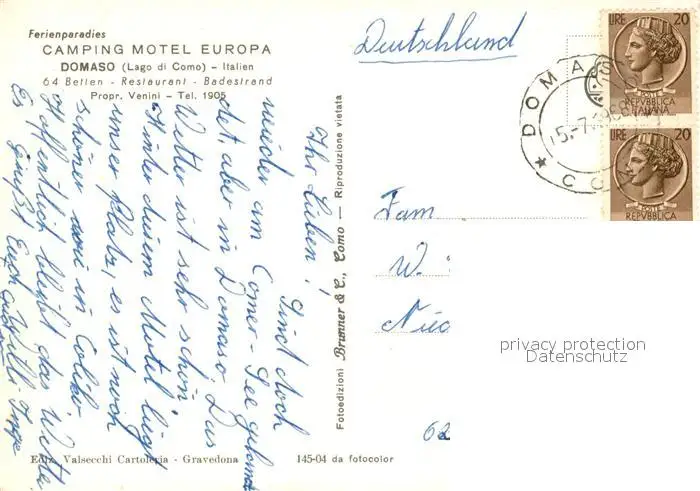 Ferienparadies
CAMPING MOTEL EUROPA
DOMASO (Lago di Como) – Italien
64 Betten - Restaurant - Badestrand
Propr. Venini – Tel. 1905
Deutschland
LIRE 20
POSTE
REPVBBLICA
ITALIANA
LIRE 20
POSTE
REPVBBLICA
DOMA
5.-7.
Ihr Lieben! Sind doch
wieder am Comer-See gelan
det, aber in Domaso. Das
Wetter ist sehr schön.
Hinter diesem Motel liegt
unser Platz, es ist noch
schöner in Colico
Hoffentlich bleibt das Wetter
Es grüßt Euch
Fotoedizioni Brunner & C., Como — Riproduzione vietata
Fam
W.
62
privacy protection
Datenschutz
Ediz. Valsecchi Cartoleria - Gravedona
145-04 da fotocolor